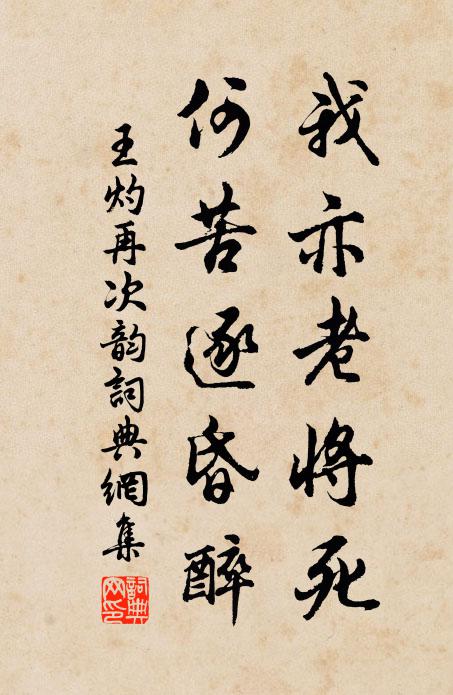 我亦老将死
何苦逐昏醉
王灼再次韵詞典網集
詞典
网印